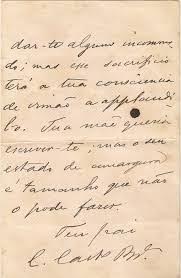 dar-te algum incommo-
do; mas esse sacrificio
terá a tua consciencia
de irmão a applaudi-
lo. Tua mãe queria
escrever-te; mas o seu
estado de amargura
é tamanho que não
o pode fazer.
Teu pai
C. Castello Br.co